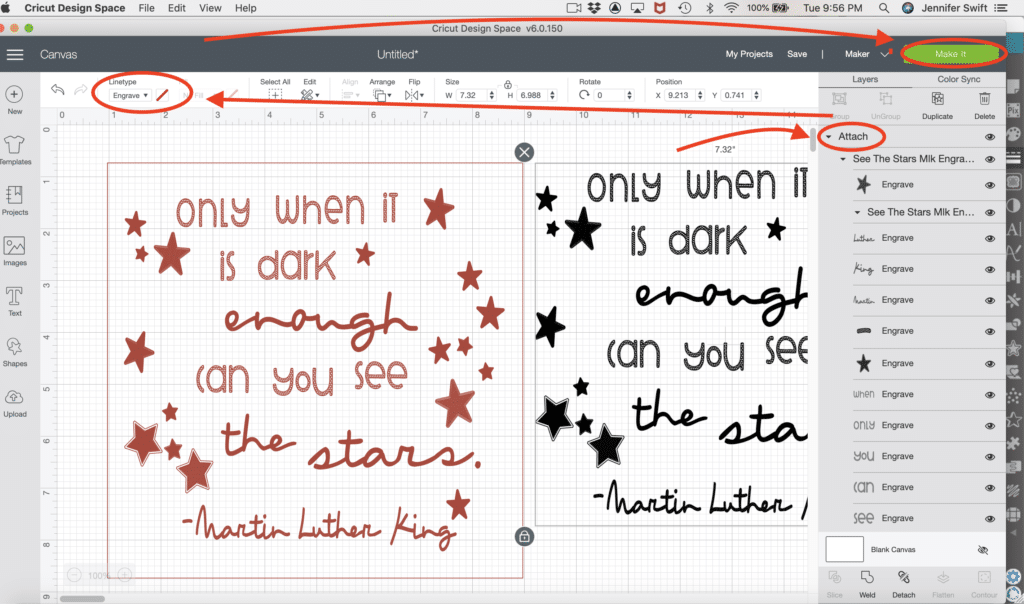 Cricut Design Space File Edit View Help 100% Tue 9:56 PM Jennifer Swift
Cricut Design Space v6.0.150
Canvas Untitled* My Projects Save | Maker Make It
Linetype Select All Edit Align Arrange Flip Size Rotate Position
Engrave W 7.32 H 6.988 0 X 9.213 Y 0.741
Layers Color Sync
Group UnGroup Duplicate Delete
New
Templates
Projects
Images
Text
Shapes
Upload
0 1 2 3 4 5 6 7 8 9 10 11 12 13 14
0
1
2
3
4
5
6
7
8
9
7.32"
only when it
is dark
enough
can you see
the stars.
-Martin Luther King
only when it
is dark
enough
can you see
the sta
-Martin Luther
100%
Attach
See The Stars Mlk Engra...
Engrave
See The Stars Mlk En...
Luther Engrave
King Engrave
Martin Engrave
Engrave
Engrave
when Engrave
only Engrave
you Engrave
can Engrave
see Engrave
Blank Canvas
Slice Weld Detach Flatten Contour